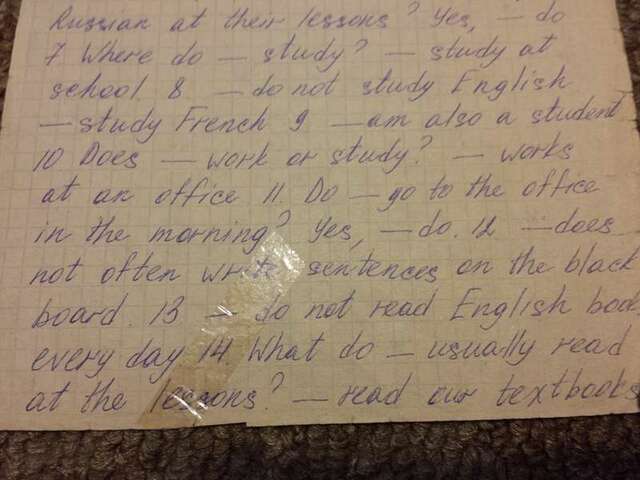 Russian at their lessons? Yes, — do
7 Where do — study? — study at
school 8 — do not study English
— study French 9 — am also a student
10 Does — work or study? — works
at an office 11. Do — go to the office
in the morning? Yes, — do. 12 — does
not often write sentences on the black
board. 13 — do not read English
every day 14 What do — usually read
at the lessons? — read our textbooks